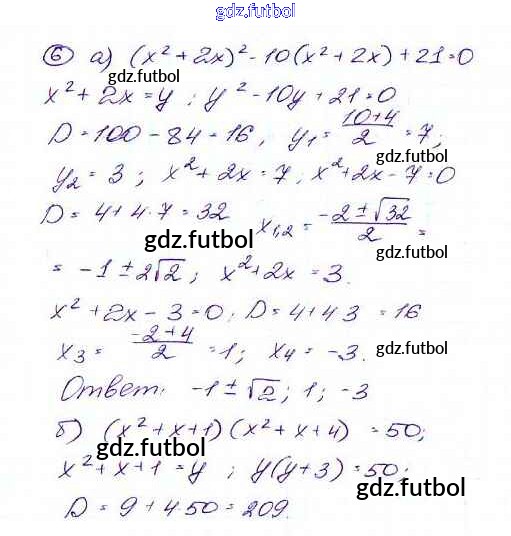 gdz.futbol
6 а) (x² + 2x)² - 10(x² + 2x) + 21 = 0
gdz.futbol
x² + 2x = y ; y² - 10y + 21 = 0
D = 100 - 84 = 16, y₁ = (10+4)/2 = 7;
gdz.futbol
y₂ = 3 ; x² + 2x = 7 ; x² + 2x - 7 = 0
D = 4 + 4·7 = 32 x₁,₂ = (-2 ± √32)/2 =
gdz.futbol
gdz.futbol
= -1 ± 2√2 ; x² + 2x = 3.
x² + 2x - 3 = 0 ; D = 4 + 4 3 = 16
x₃ = (-2+4)/2 = 1; x₄ = -3.
gdz.futbol
Ответ: -1 ± √2 ; 1 ; -3
б) (x² + x + 1) (x² + x + 4) = 50;
gdz.futbol
x² + x + 1 = y ; y(y + 3) = 50;
gdz.futbol
D = 9 + 4·50 = 209.